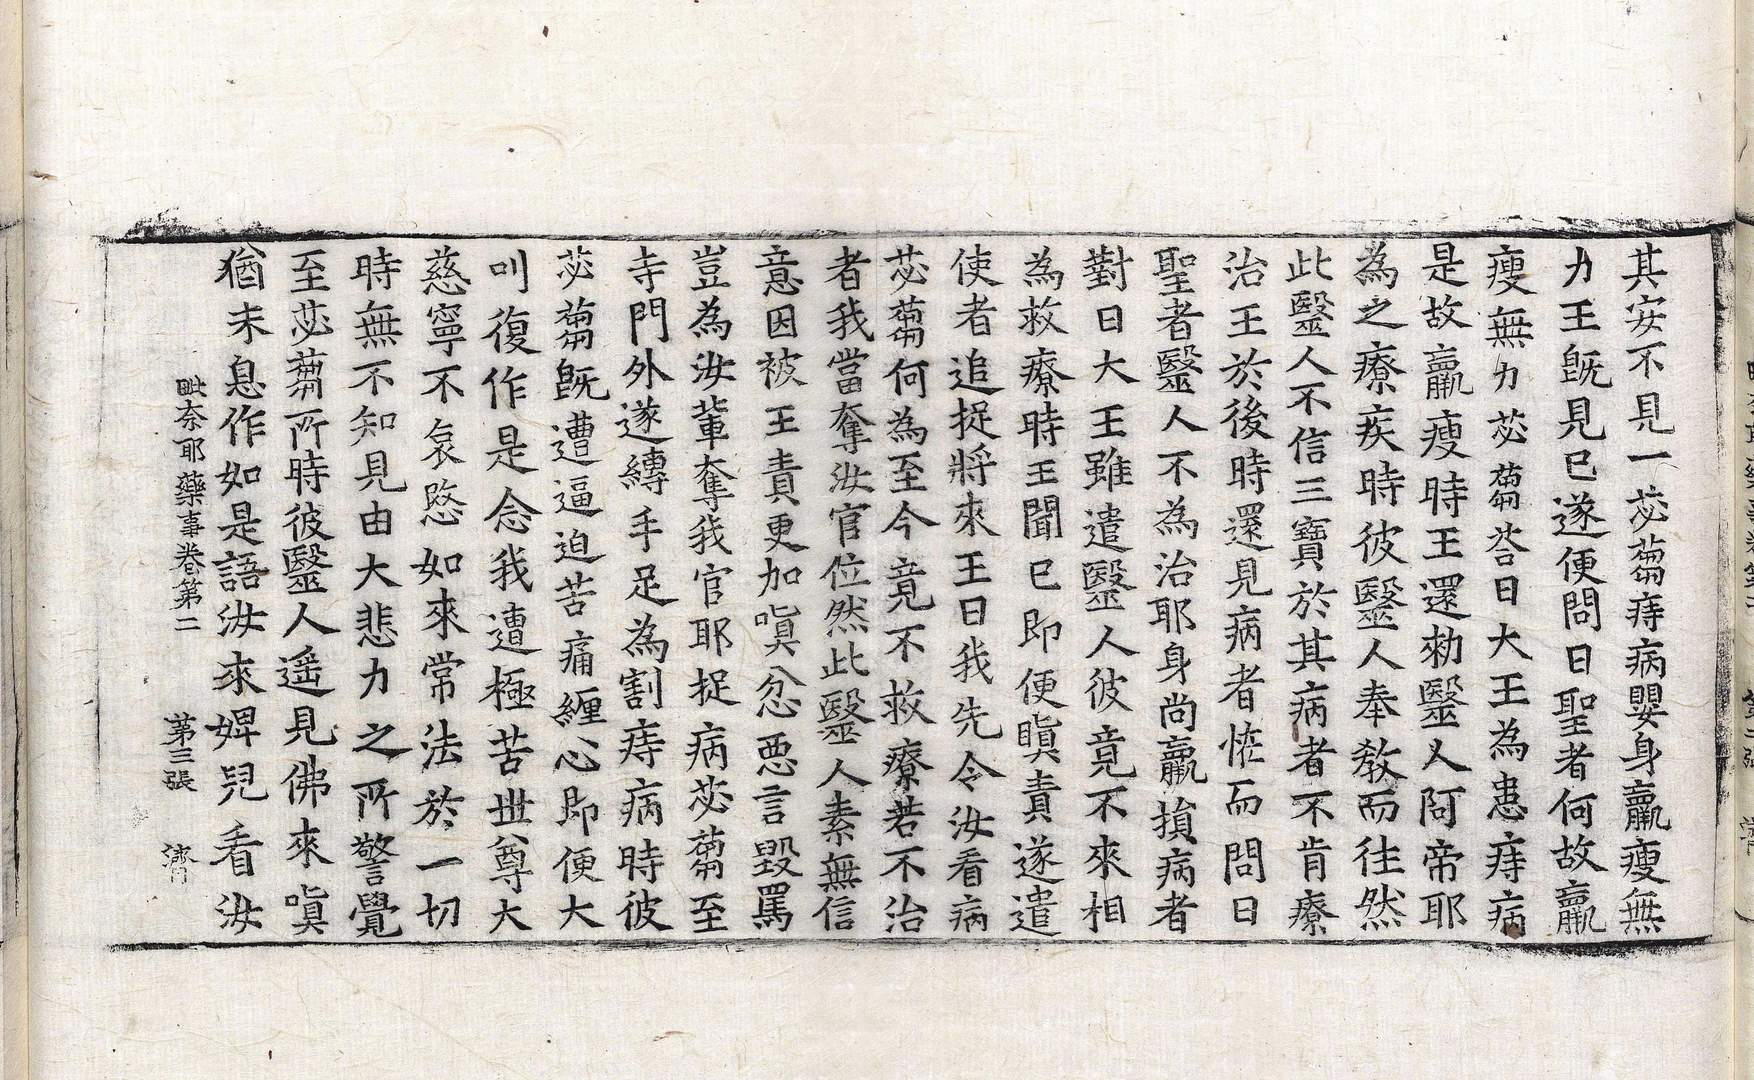 其安不見一苾蒭痔病嬰身羸瘦無
力王旣見已遂便問曰聖者何故羸
瘦無力苾蒭荅曰大王為患痔病
是故羸瘦時王還勑醫人阿帝耶
為之療疾時彼醫人奉教而往然
此醫人不信三寶於其病者不肯療
治王於後時還見病者恠而問曰
聖者醫人不為治耶身尚羸損病者
對曰大王雖遣醫人彼竟不來相
為救療時王聞已即便瞋責遂遣
使者追捉將來王曰我先令汝看病
苾蒭何為至今竟不救療若不治
者我當奪汝官位然此醫人素無信
意因被王責更加嗔忿惡言毀罵
豈為汝輩奪我官耶捉病苾蒭至
寺門外遂縛手足為割痔病時彼
苾蒭旣遭逼迫苦痛纏心即便大
叫復作是念我遭極苦世尊大
慈寧不哀愍如來常法於一切
時無不知見由大悲力之所警覺
至苾蒭所時彼醫人遥見佛來嗔
猶未息作如是語汝來婢兒看汝
毗奈耶藥事卷第二 第三張 濟